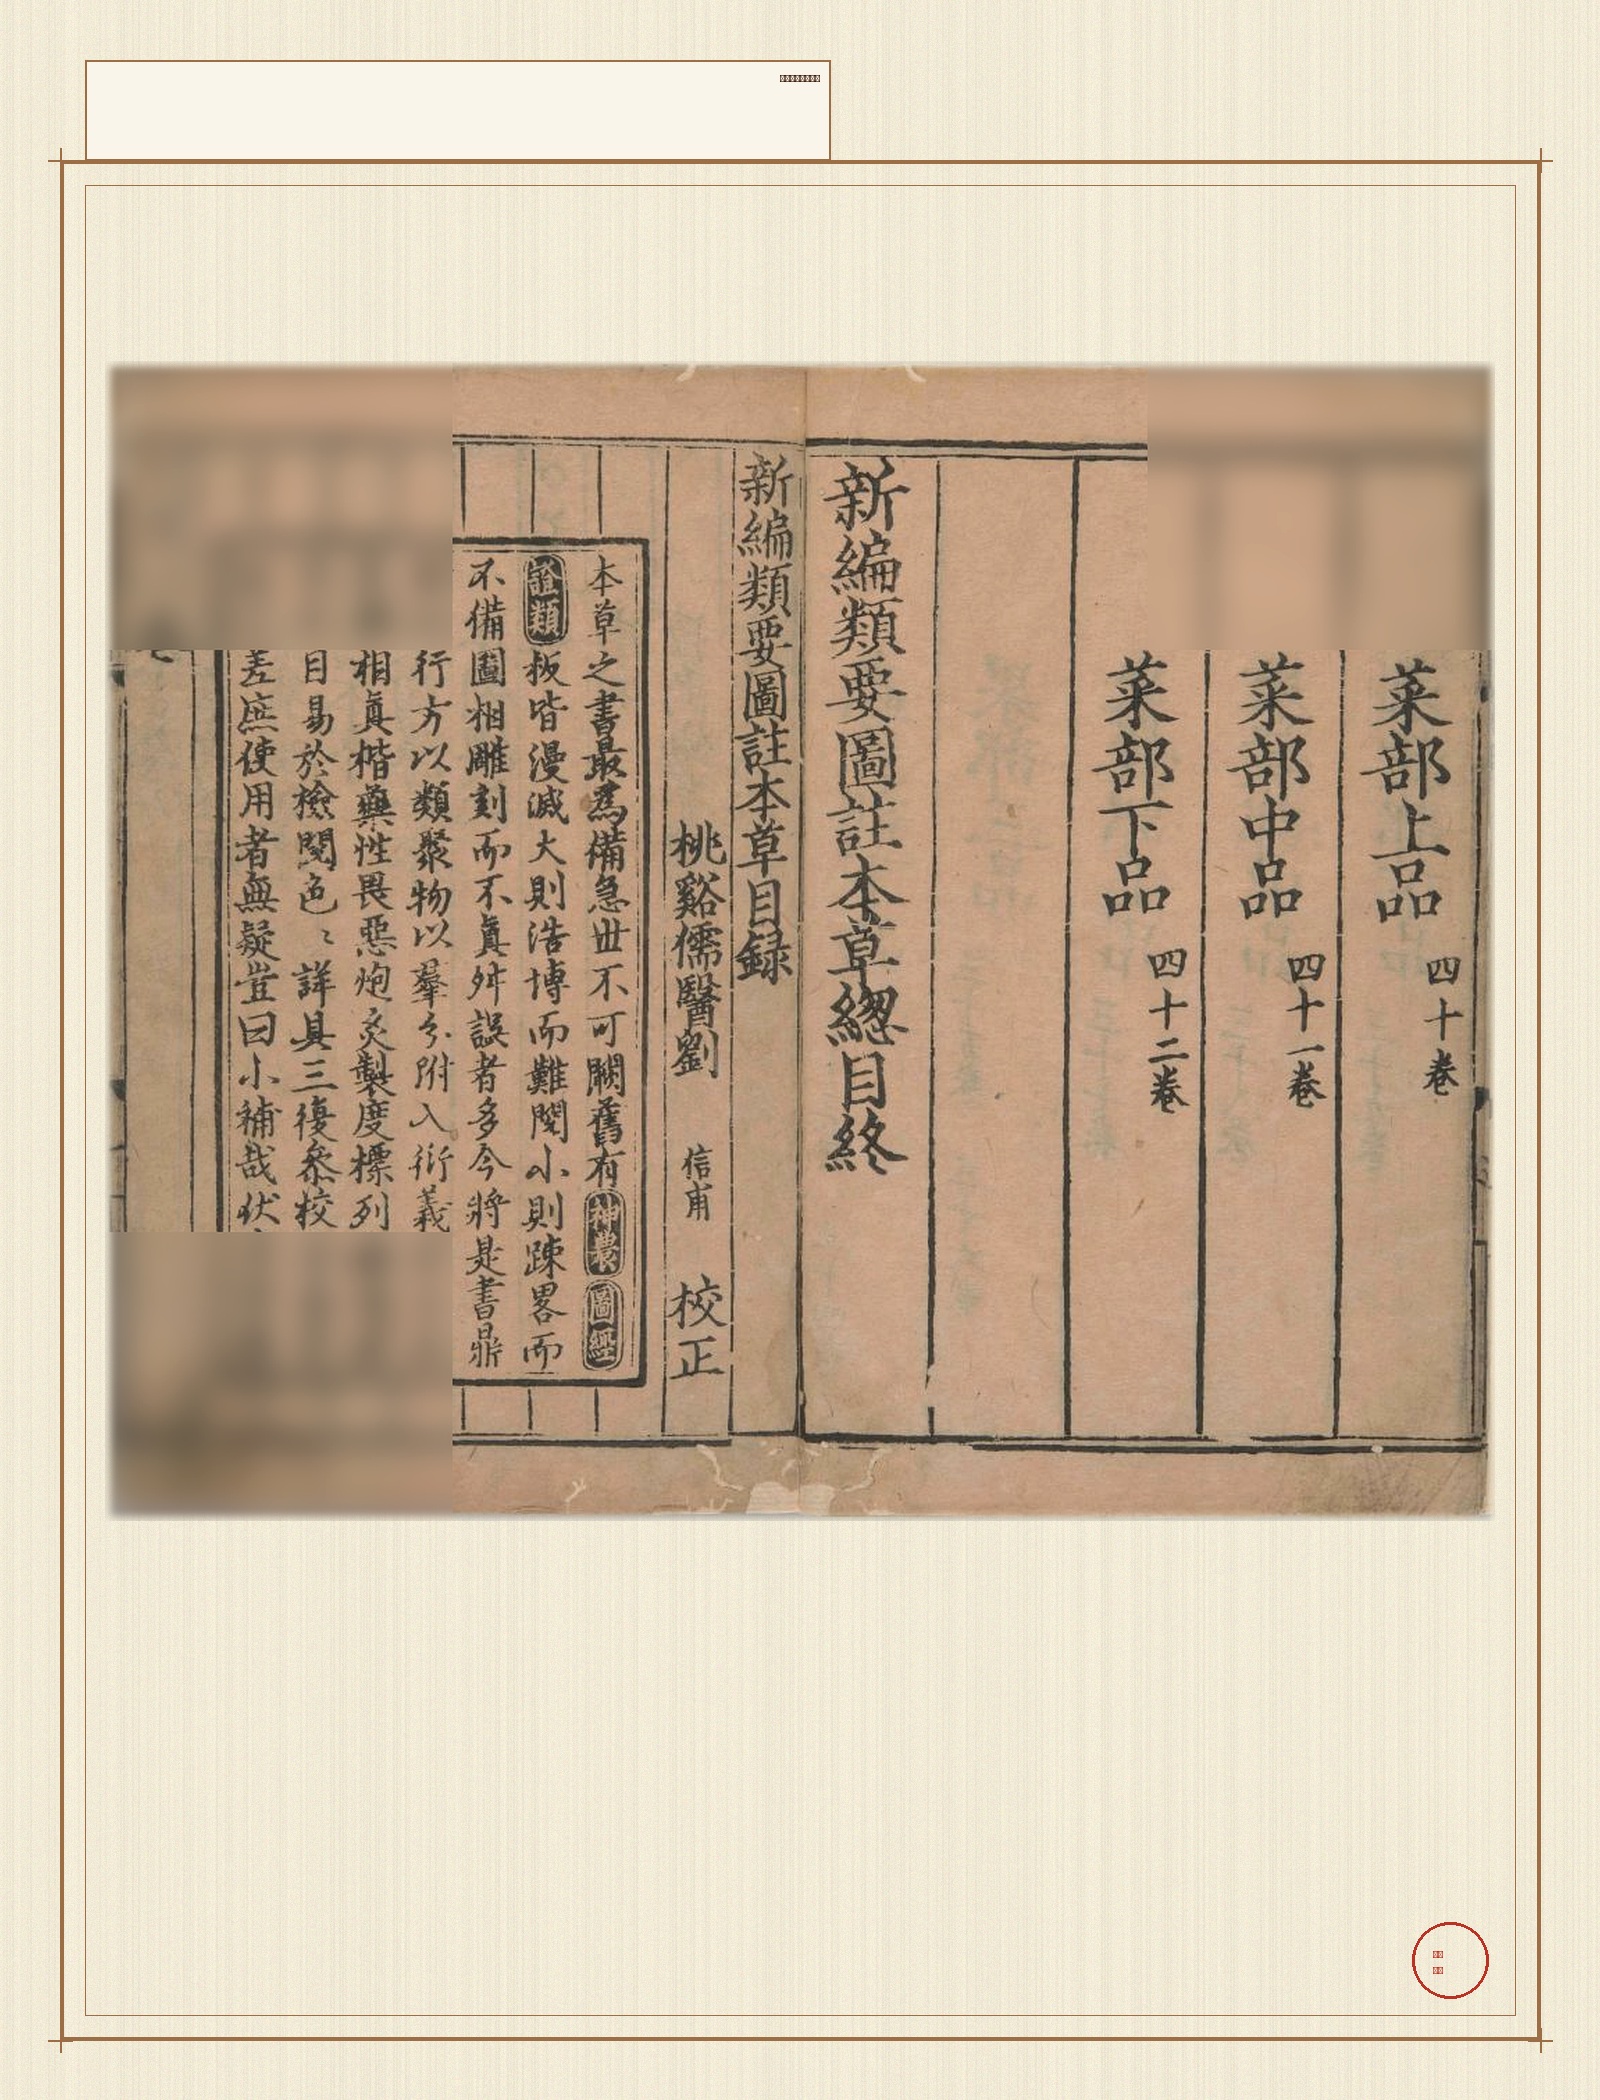 菜部上品 四十卷
菜部中品 四十一卷
菜部下品 四十二卷
新編類要圖註本草緫目終
新編類要圖註本草目録
桃谿儒醫劉 信甫 校正
本草之書最爲備急世不可闕舊有神農圖經
證類板皆漫滅大則浩博而難閱小則踈畧而
不備圖相雕刻而不眞舛誤者多今將是書鼎
行方以類聚物以羣分附入衍義
相眞楷藥性畏惡炮炙製度標列
目易於檢閱色〻詳具三復叅校
差庶使用者無疑豈曰小補哉伏